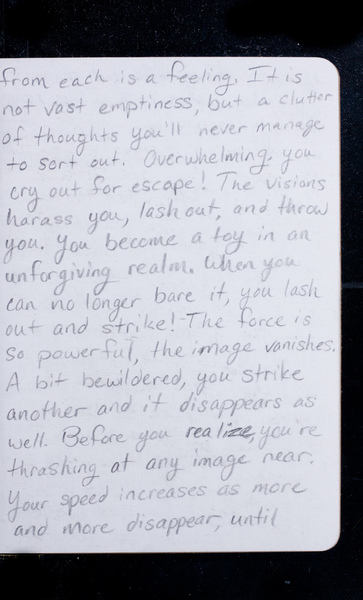 from each is a feeling. It is
not vast emptiness, but a clutter
of thoughts you'll never manage
to sort out. Overwhelming, you
cry out for escape! The visions
harass you, lash out, and throw
you. You become a toy in an
unforgiving realm. When you
can no longer bare it, you lash
out and strike! The force is
so powerful, the image vanishes.
A bit bewildered, you strike
another and it disappears as
well. Before you realize, you're
thrashing at any image near.
Your speed increases as more
and more disappear, until